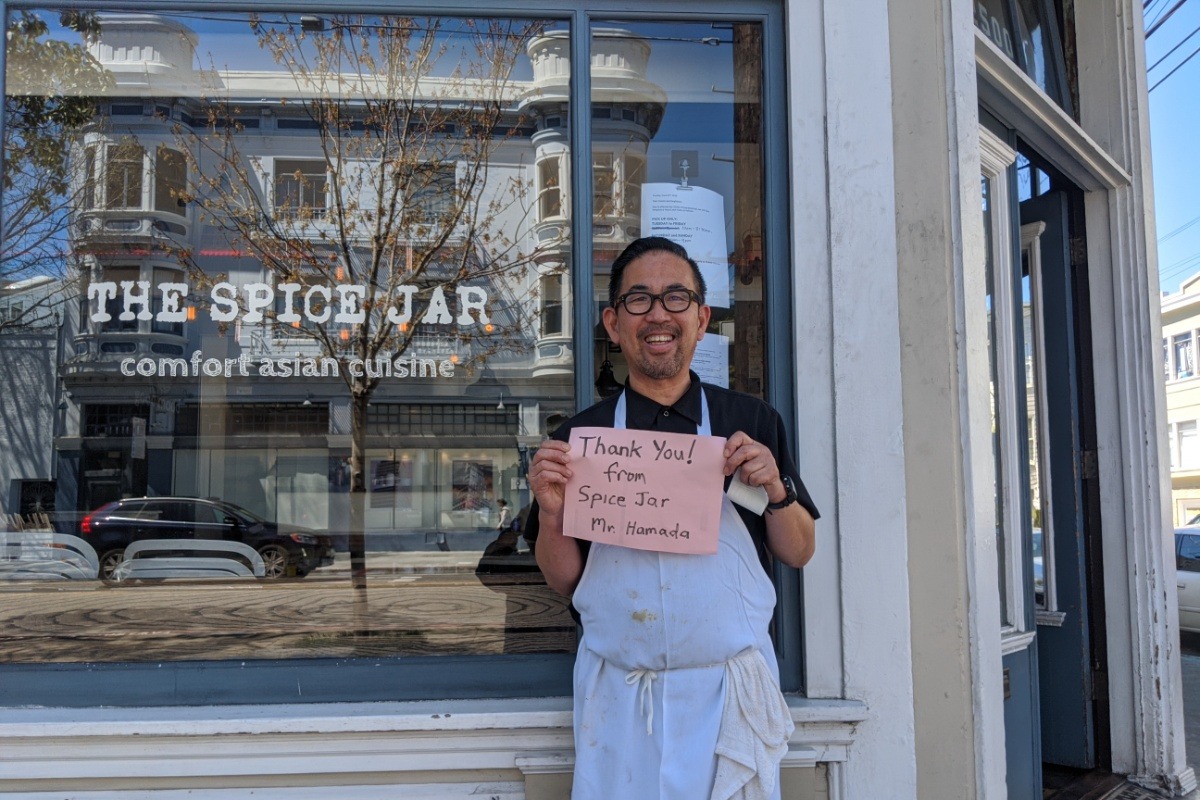 THE SPICE JAR
comfort asian cuisine
Thank You!
from
Spice Jar
Mr. Hamada